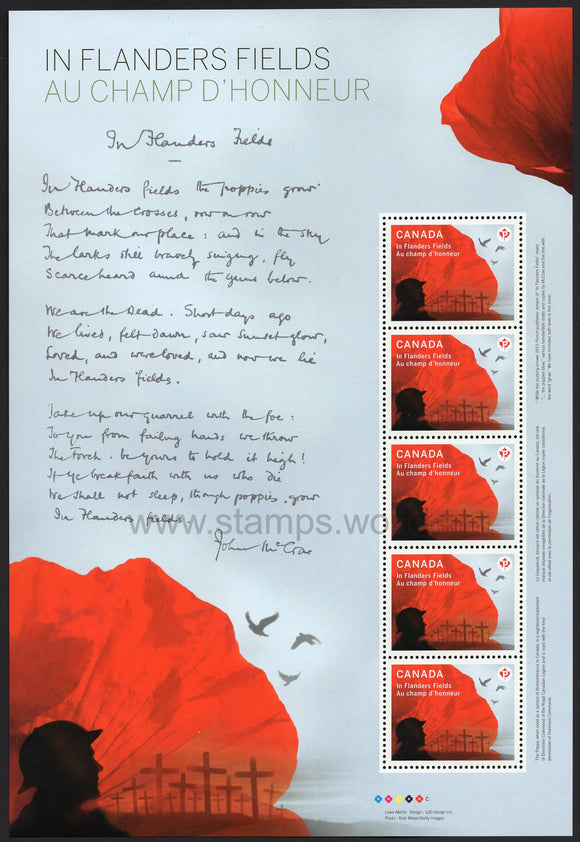 IN FLANDERS FIELDS
AU CHAMP D'HONNEUR
In Flanders Fields
In Flanders fields the poppies grow
Between the crosses, row on row
That mark our place: and in the sky
The larks still bravely singing, fly
Scarce heard amid the guns below.
We are the Dead. Short days ago
We lived, felt dawn, saw sunset glow,
Loved, and were loved, and now we lie
In Flanders fields.
Take up our quarrel with the foe:
To you from failing hands we throw
The Torch: be yours to hold it high!
If ye break faith with us who die
We shall not sleep, though poppies grow
In Flanders fields.
John McCrae
www.stamps.wo
CANADA
In Flanders Fields
Au champ d'honneur
P
CANADA
In Flanders Fields
Au champ d'honneur
P
CANADA
In Flanders Fields
Au champ d'honneur
P
CANADA
In Flanders Fields
Au champ d'honneur
P
CANADA
In Flanders Fields
Au champ d'honneur
P
C
Lowe-Martin Design / q30 design inc.
Photo - Roel Meijer/Getty Images